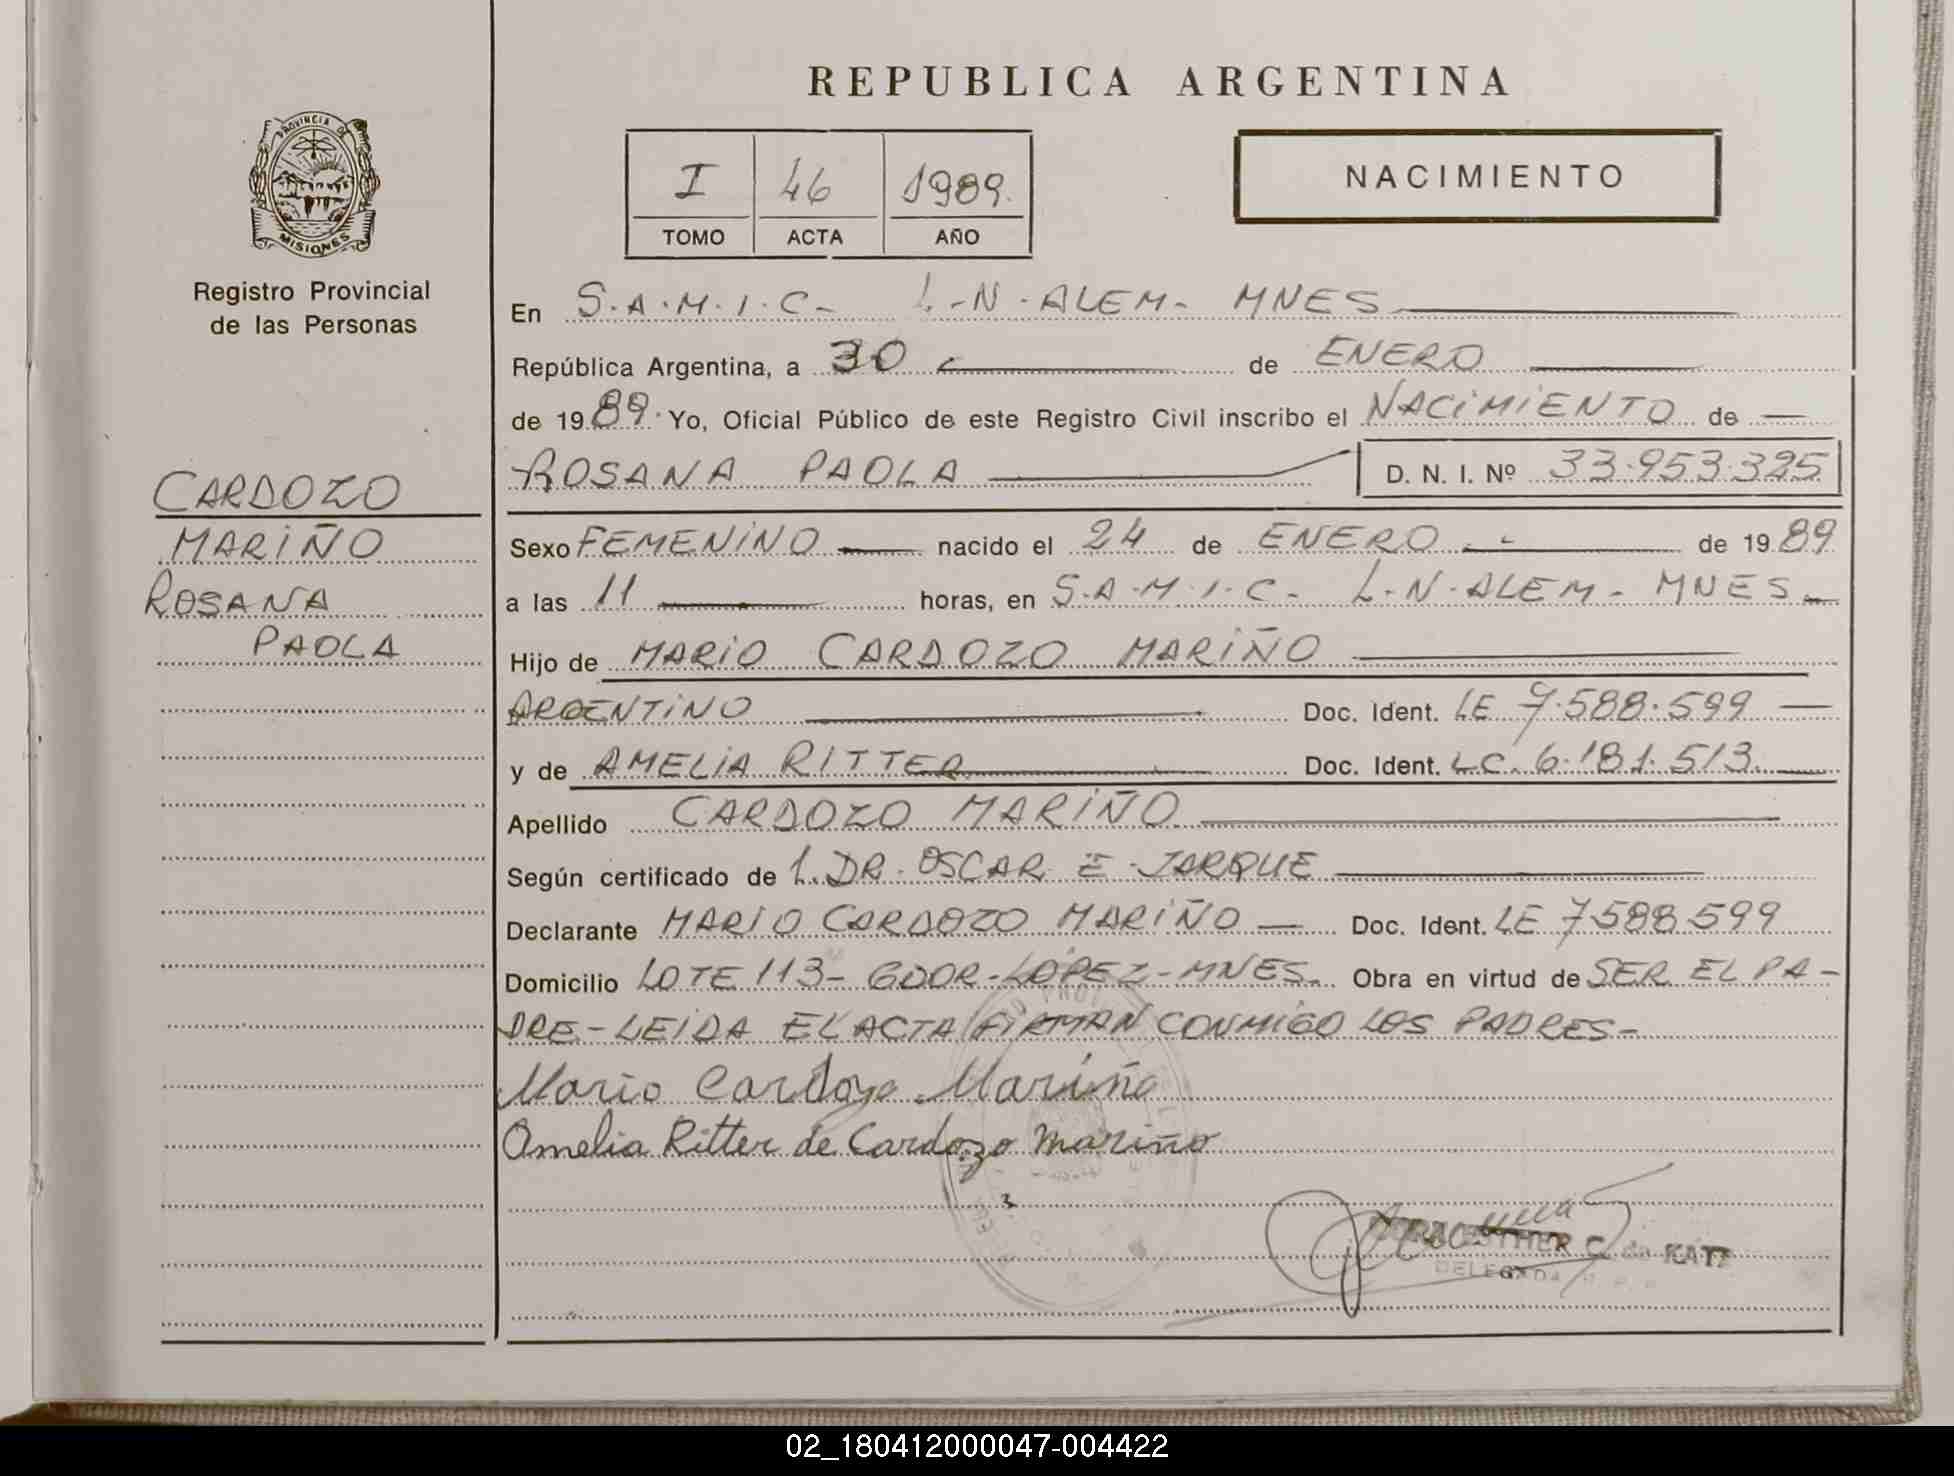 REPUBLICA ARGENTINA
PROVINCIA DE
MISIONES
Registro Provincial
de las Personas
I 46 1989.
TOMO ACTA AÑO
NACIMIENTO
En S.A.M.I.C- L.-N-ALEM- MNES
República Argentina, a 30 de ENERO
de 1989. Yo, Oficial Público de este Registro Civil inscribo el NACIMIENTO de
ROSANA PAOLA D. N. I. Nº 33.953.325
CARDOZO
MARIÑO
ROSANA
PAOLA
Sexo FEMENINO nacido el 24 de ENERO de 1989
a las 11 horas, en S.A.M.I.C- L-N-ALEM- MNES-
Hijo de MARIO CARDOZO MARIÑO
ARGENTINO Doc. Ident. LE 7.588.599
y de AMELIA RITTER Doc. Ident. LC. 6.181.513.
Apellido CARDOZO MARIÑO
Según certificado de l. DR. OSCAR E JARQUE
Declarante MARIO CARDOZO MARIÑO Doc. Ident. LE 7588599
Domicilio LOTE 113- GDOR-LOPEZ-MNES. Obra en virtud de SER EL PA-
DRE-LEIDA EL ACTA FIRMAN CONMIGO LOS PADRES-
Mario Cardozo Mariño
Amelia Ritter de Cardozo Mariño
ESTHER C. de KATZ
DELEGADA
02_180412000047-004422